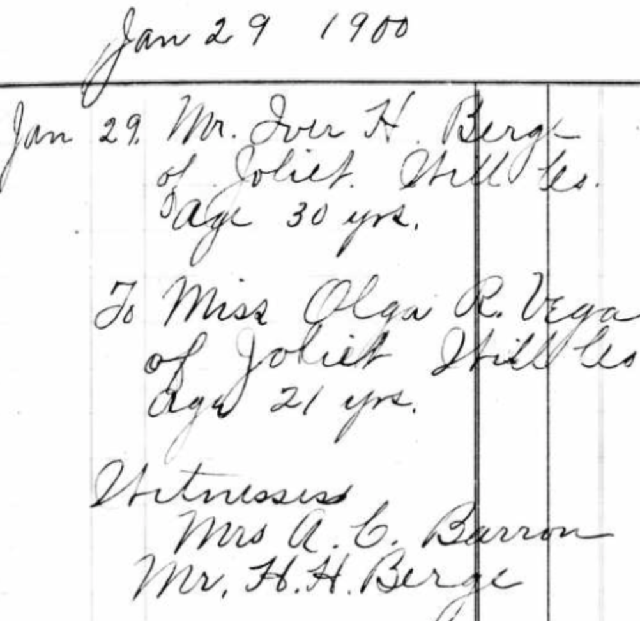 Jan 29 1900
Jan 29. Mr. Iver H. Berge
of Joliet. Will Co.
age 30 yrs.
To Miss Olga R. Vega
of Joliet Will Co
Age 21 yrs.
Witnesses
Mrs A. C. Barron
Mr. H. H. Berge